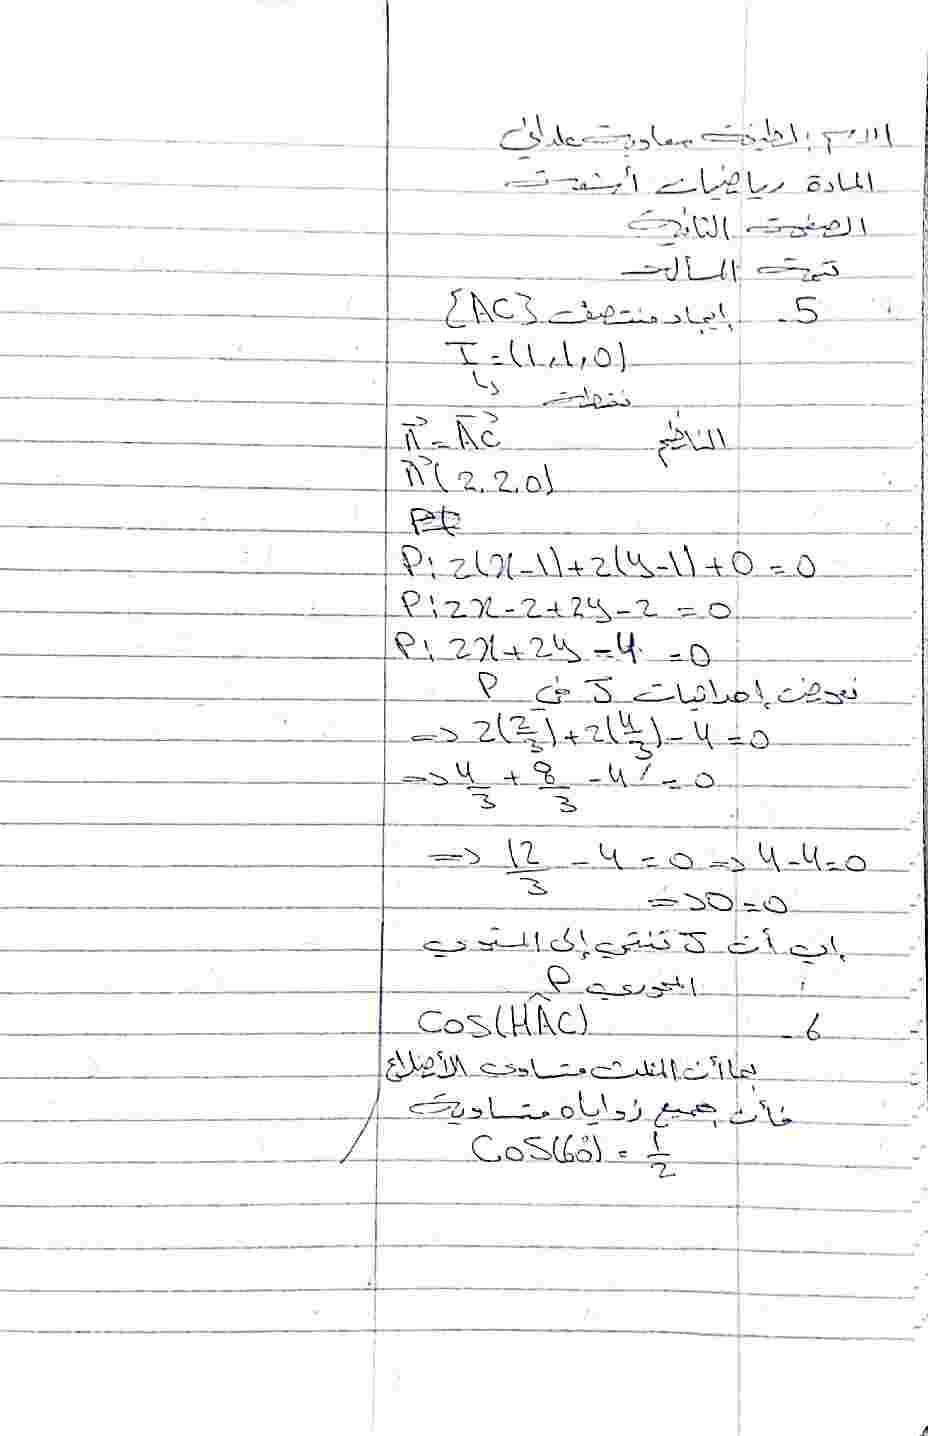 الاسم: لطيفة معاوية علداني
المادة رياضيات أتمتة
الصفحة الثانية
تتمة المسألة
5- إيجاد منتصف [AC]
I = (1,1,0)
نقطة
الناظم n⃗ = AC⃗
n⃗(2,2,0)
P: 2(x-1)+2(y-1)+0=0
P: 2x-2+2y-2=0
P: 2x+2y-4=0
نعوض إحداثيات J في P
⇒ 2(2/3)+2(4/3)-4=0
⇒ 4/3 + 8/3 - 4 = 0
⇒ 12/3 - 4 = 0 ⇒ 4-4=0
⇒ 0=0
إي أن J تنتمي إلى المستوي
المحوري P
6- Cos(HÂC)
بما أن المثلث متساوي الأضلاع
فأن جميع زواياه متساوية
Cos(60°) = 1/2